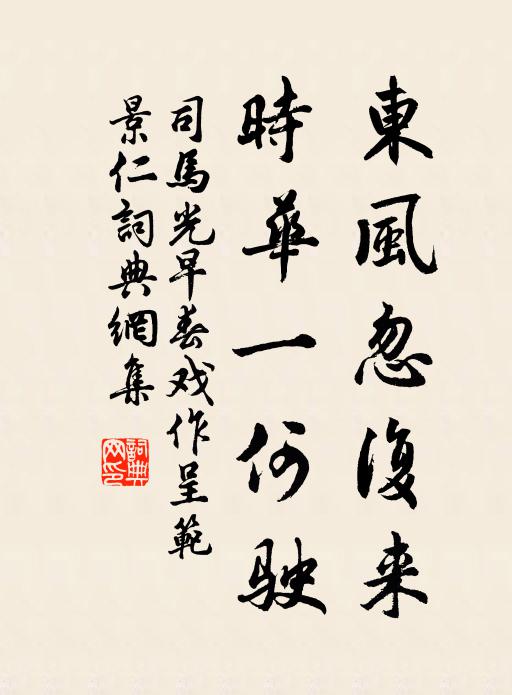 東風忽復来
時華一何駛
司馬光早春戏作呈範
景仁詞典網集
詞典网印